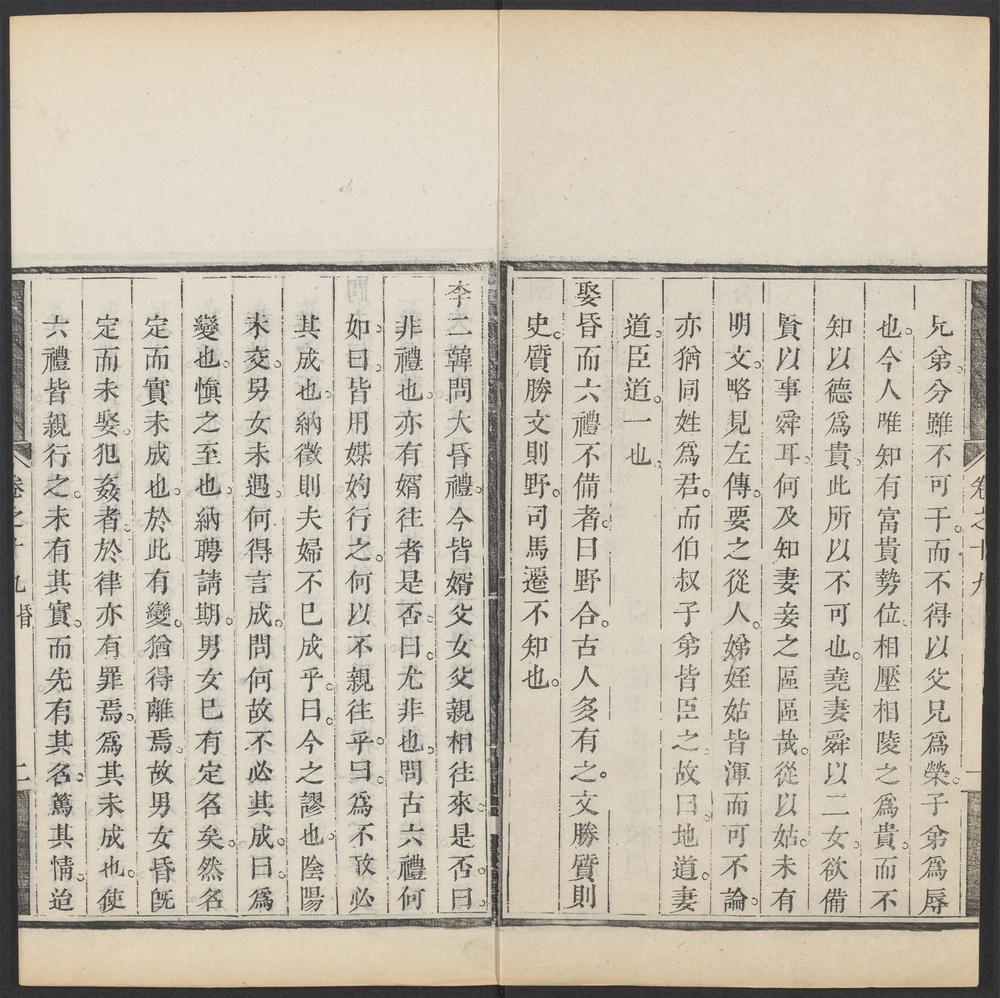 卷之十九
一
兄弟分雖不可干。而不得以父兄爲榮。子弟爲辱
也。今人唯知有富貴勢位。相壓相陵之爲貴。而不
知以德爲貴。此所以不可也。堯妻舜以二女。欲備
賢以事舜耳。何及知妻妾之區區哉。從以姑。未有
明文。略見左傳。要之從人。娣姪姑皆渾而可不論。
亦猶同姓爲君。而伯叔子弟皆臣之。故曰。地道。妻
道。臣道。一也。
娶昏而六禮不備者。曰野合。古人多有之。文勝質則
史。質勝文則野。司馬遷不知也。
李二韓問大昏禮。今皆婿父女父親相往來。是否。曰。
非禮也。亦有婿往者是否。曰尤非也。問古六禮何
如。曰。皆用媒妁行之。何以不親往乎。曰。爲不敢必
其成也。納徵則夫婦不已成乎。曰。今之謬也。陰陽
未交。男女未遇。何得言成。問何故不必其成。曰。爲
變也。愼之至也。納聘請期。男女已有定名矣。然名
定而實未成也。於此有變。猶得離焉。故男女昏既
定而未娶。犯姦者。於律亦有罪焉。爲其未成也。使
六禮皆親行之。未有其實。而先有其名。篤其情。迨
卷之十九 昏
二